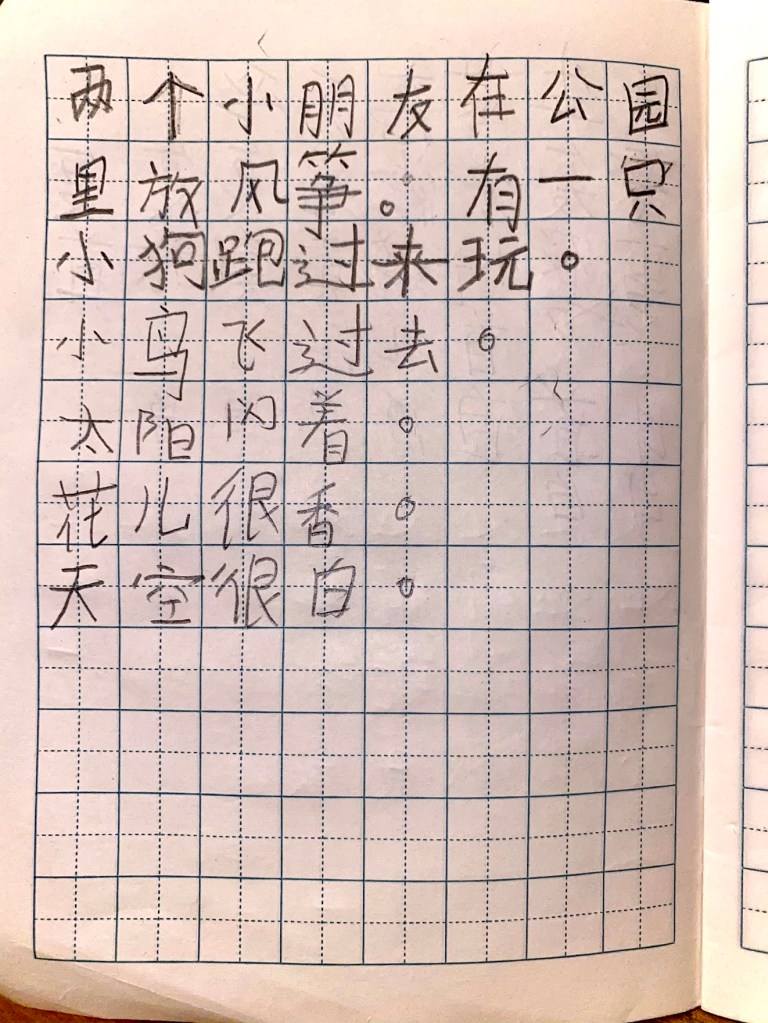 两个小朋友在公园
里放风筝。有一只
小狗跑过来玩。
小鸟飞过去。
太阳闪着。
花儿很香。
天空很白。